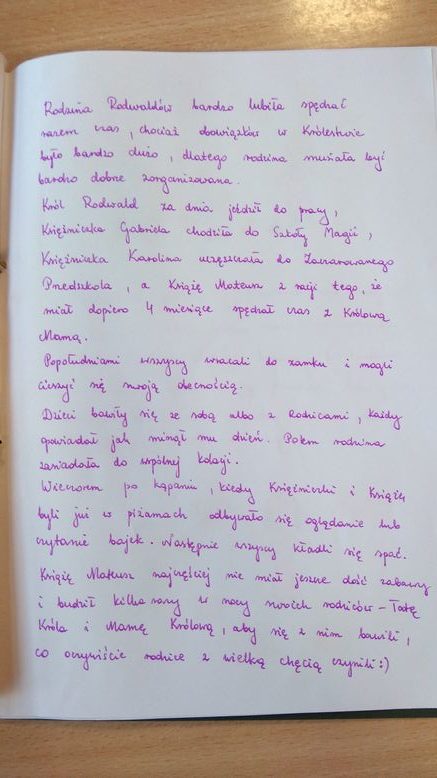 Rodzina Rodwaldów bardzo lubiła spędzać
razem czas, chociaż obowiązków w Królestwie
było bardzo dużo, dlatego rodzina musiała być
bardzo dobrze zorganizowana.
Król Rodwald za dnia jeździł do pracy,
Księżniczka Gabriela chodziła do Szkoły Magii,
Księżniczka Karolina uczęszczała do Zaczarowanego
Przedszkola, a Książę Mateusz z racji tego, że
miał dopiero 4 miesiące spędzał czas z Królową
Mamą.
Popołudniami wszyscy wracali do zamku i mogli
cieszyć się swoją obecnością.
Dzieci bawiły się ze sobą albo z Rodzicami, każdy
opowiadał jak minął mu dzień. Potem rodzina
zasiadała do wspólnej kolacji.
Wieczorem po kąpaniu, kiedy Księżniczki i Książę
byli już w piżamach odbywało się oglądanie lub
czytanie bajek. Następnie wszyscy kładli się spać.
Książę Mateusz najczęściej nie miał jeszcze dość zabawy
i budził kilka razy w nocy swoich rodziców - Tatę
Króla i Mamę Królową, aby się z nim bawili,
co oczywiście rodzice z wielką chęcią czynili :)